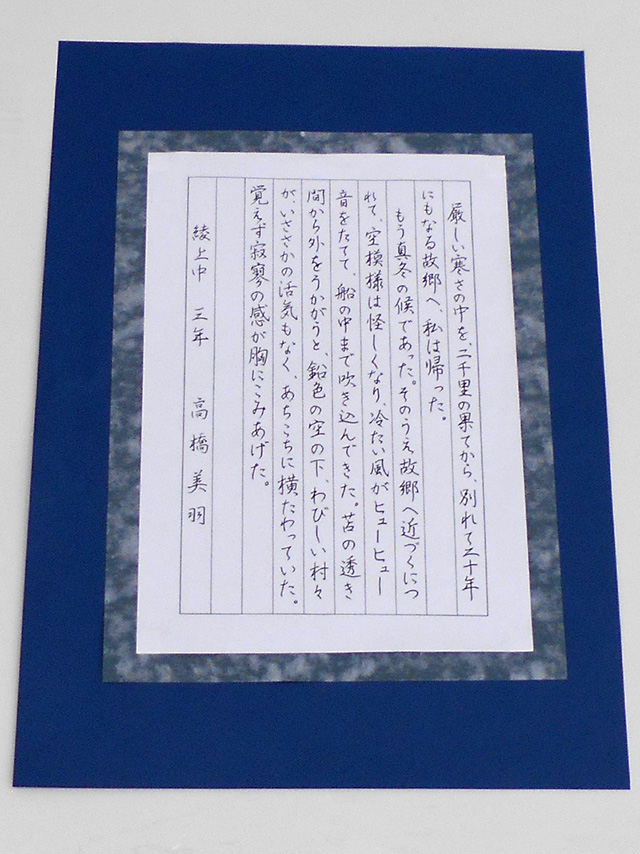 厳しい寒さの中を、二千里の果てから、別れて二十年
にもなる故郷へ、私は帰った。
もう真冬の候であった。そのうえ故郷へ近づくにつ
れて、空模様は怪しくなり、冷たい風がヒューヒュー
音をたてて、船の中まで吹き込んできた。苫の透き
間から外をうかがうと、鉛色の空の下、わびしい村々
が、いささかの活気もなく、あちこちに横たわっていた。
覚えず寂寥の感が胸にこみあげた。
綾上中 三年 高橋美羽